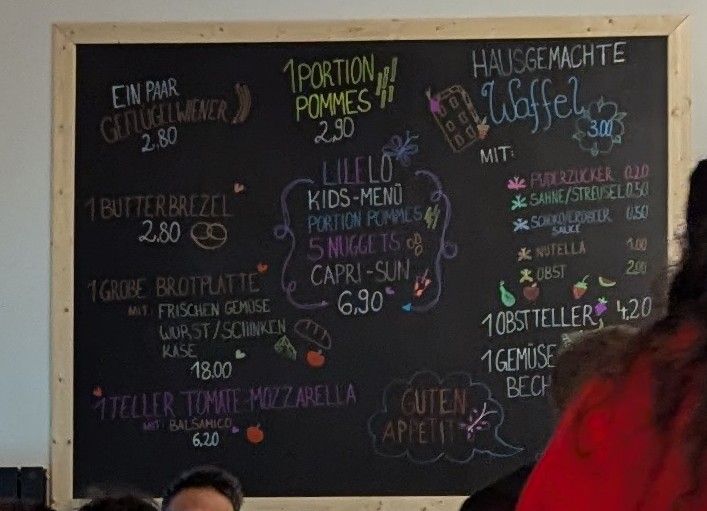 EIN PAAR
GEFLÜGELWIENER
2,80
1 BUTTERBREZEL
2,80
1 GROßE BROTPLATTE
MIT: FRISCHEN GEMÜSE
WURST/SCHINKEN
KÄSE
18.00
1 TELLER TOMATE-MOZZARELLA
MIT: BALSAMICO
6,20
1 PORTION
POMMES
2,90
LILELO
KIDS-MENÜ
PORTION POMMES
5 NUGGETS
CAPRI-SUN
6,90
GUTEN
APPETIT
HAUSGEMACHTE
Waffel
3.00
MIT:
PUDERZUCKER 0.20
SAHNE/STREUSEL 0.50
SCHOKO/ERDBEER 0.50
SAUCE
NUTELLA 1.00
OBST 2.00
1 OBSTTELLER 4.20
1 GEMÜSE
BECH